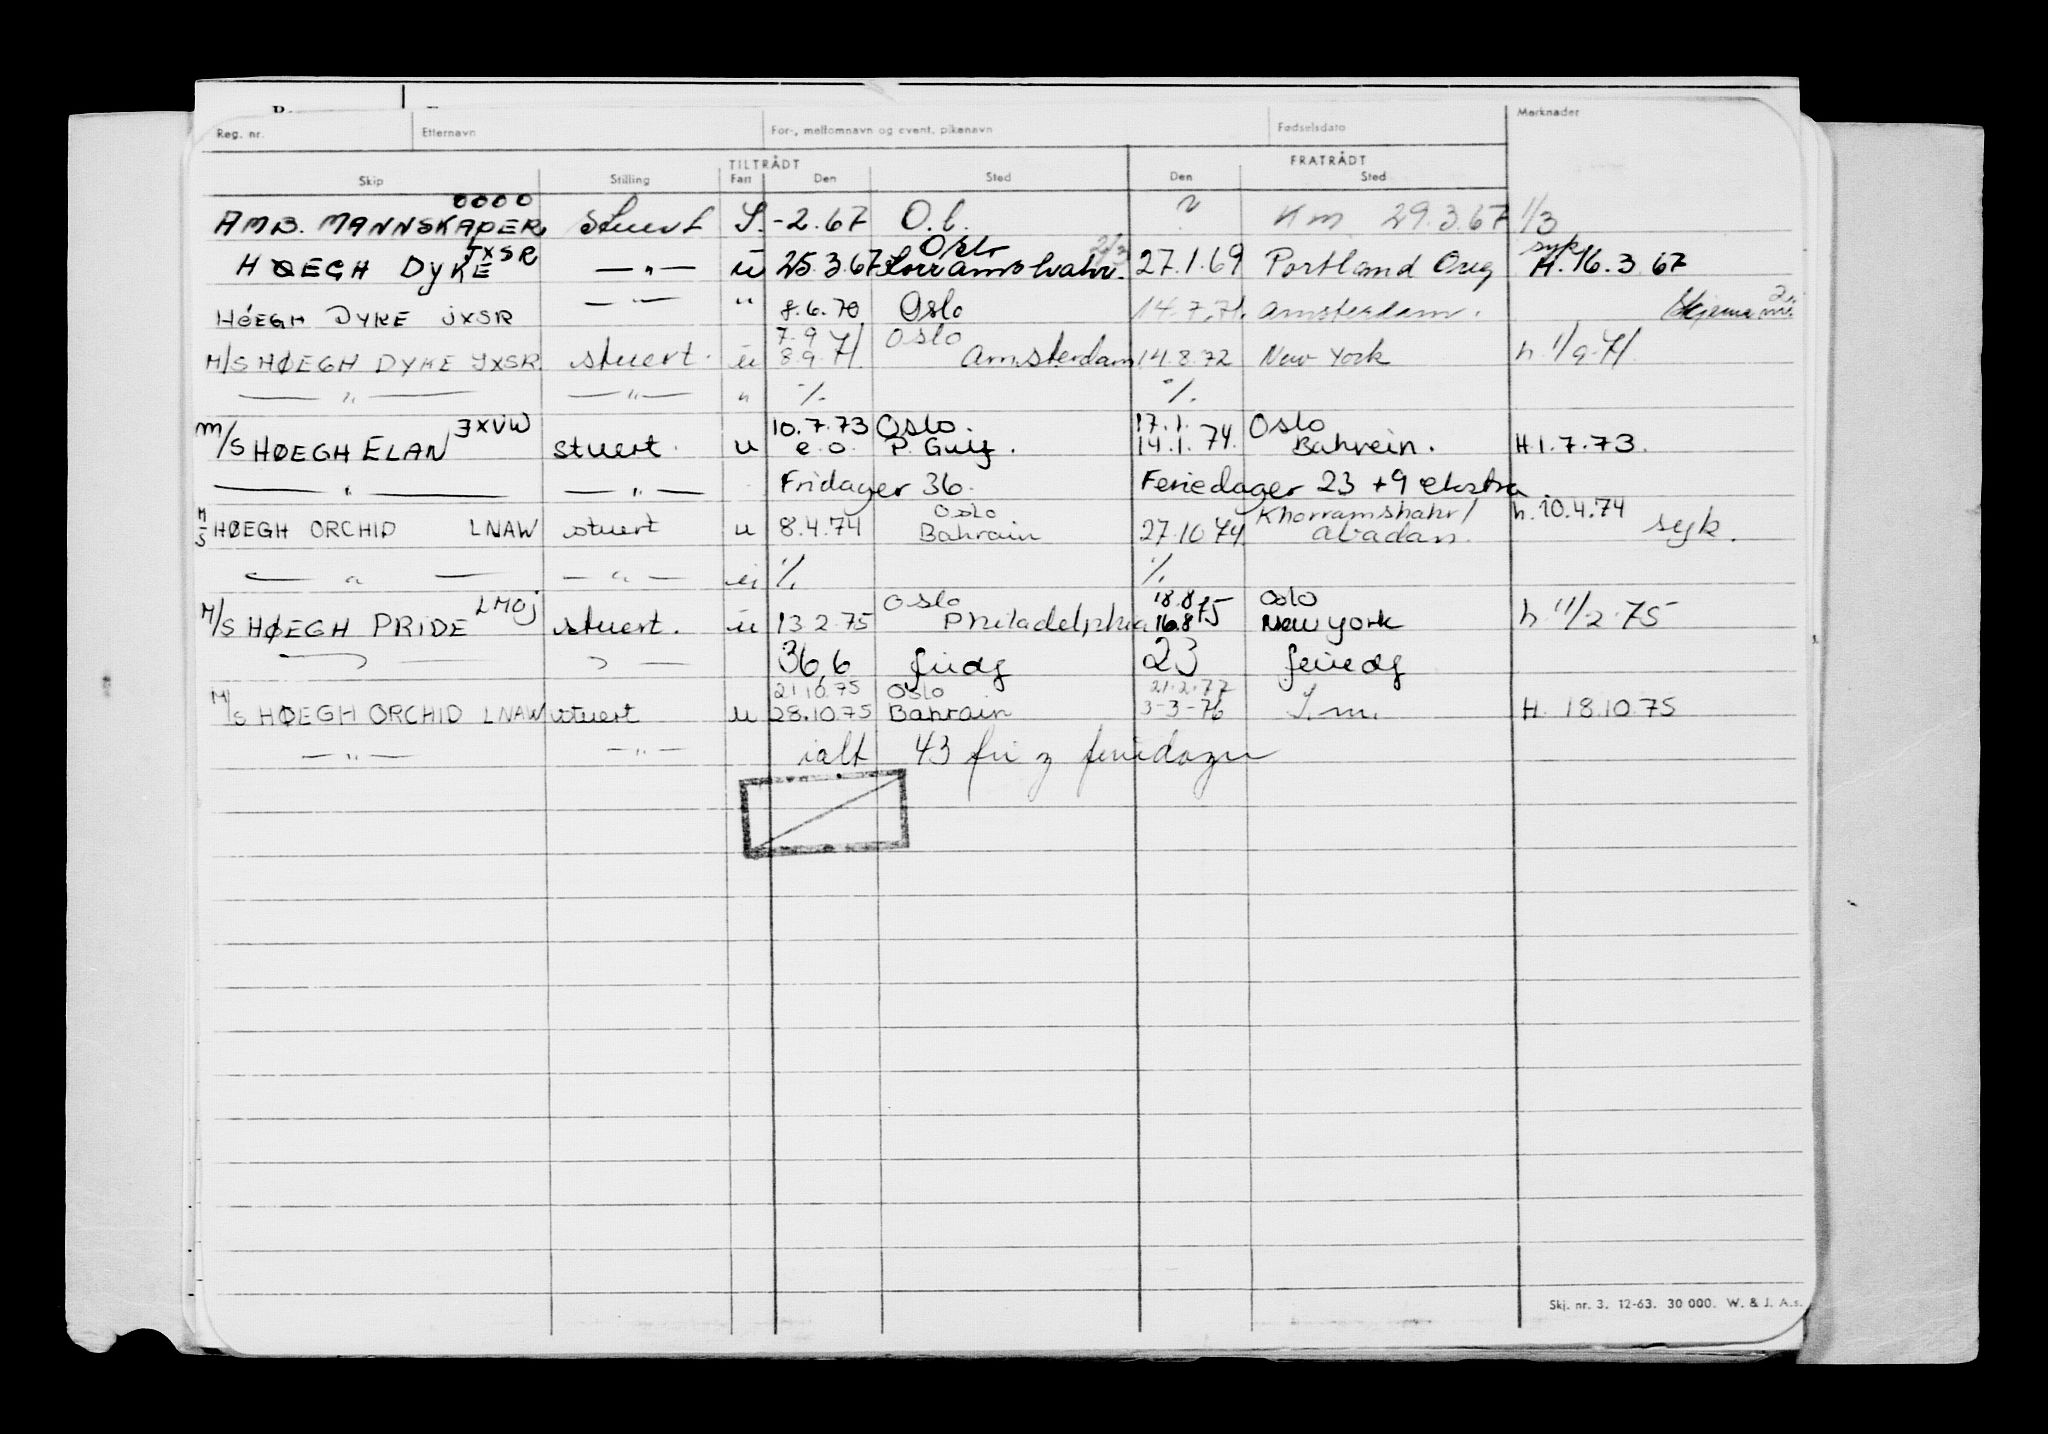 Reg. nr. Etternavn For-, mellomnavn og event. pikenavn Fødselsdato Merknader
TILTRÅDT FRATRÅDT
Skip Stilling Fart Den Sted Den Sted
0000
AMB. MANNSKAPER stuert S. -2.67 O.l. Km 29.3.67 1/3
JXSR Oslo 2/3 syk
HØEGH DYKE — " — u 25.3.67 27.1.69 Portland Oreg H. 16.3.67
HØEGH DYKE JXSR — " — " 8.6.70 Oslo 14.7.71. Amsterdam. Skjema 2 nr.
7.9 Oslo
M/S HØEGH DYKE JXSR. stuert. u 8.9.71. Amsterdam 14.8.72 New York h. 1/9-71.
— " — — " — " % %
JXVW 10.7.73 Oslo. 17.1. Oslo
M/S HØEGH ELAN stuert. u e.o. P. Gulf. 14.1.74. Bahrein. H.1.7.73.
— " — — " — Fridager 36. Feriedager 23 + 9 ekstra.
Oslo Khorramshahr/
M/S HØEGH ORCHID LNAW stuert u 8.4.74 Bahrain 27.10.74. Abadan. h. 10.4.74 syk.
— " — — " — u % %
LMOJ Oslo 18.8 Oslo
M/S HØEGH PRIDE stuert. u 13.2.75 Philadelphia 16.8.75 New York h 11/2-75
— " — 36,6 fridg 23 feriedg
21.10.75 Oslo 21.2.77
M/S HØEGH ORCHID LNAW stuert u 28.10.75 Bahrain 3-3-76 S.m. H. 18.10.75
— " — — " — ialt 43 fri og feriedager
Skj. nr. 3. 12-63. 30 000. W. & J. A.s.